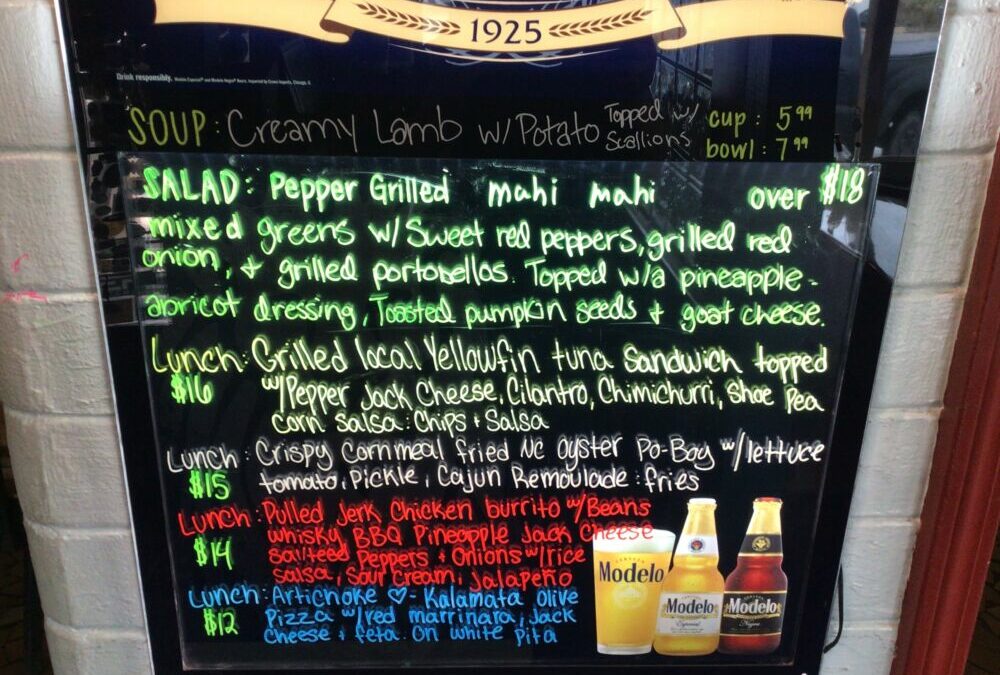 1925
Drink responsibly.
SOUP: Creamy Lamb w/Potato Topped w/ Scallions cup: 5.99
bowl: 7.99
SALAD: Pepper Grilled mahi mahi over $18
mixed greens w/Sweet red peppers, grilled red
onion, + grilled portobellos. Topped w/a pineapple-
apricot dressing, Toasted pumpkin seeds + goat cheese.
Lunch: Grilled local Yellowfin tuna Sandwich topped
$16 w/Pepper Jack Cheese, Cilantro, Chimichurri, Shoe Pea
Corn Salsa: Chips + Salsa
Lunch: Crispy Cornmeal fried NC oyster Po-Boy w/lettuce
$15 tomato, Pickle, Cajun Remoulade: fries
Lunch: Pulled Jerk Chicken burrito w/Beans
whisky BBQ Pineapple Jack Cheese
$14 sauteed Peppers + Onions w/rice
Salsa, Sour Cream, Jalapeño
Lunch: Artichoke ♡ - Kalamata Olive
$12 Pizza w/red marrinara, Jack
Cheese + feta. On white pita
Modelo
Modelo
Especial
Modelo
Negra